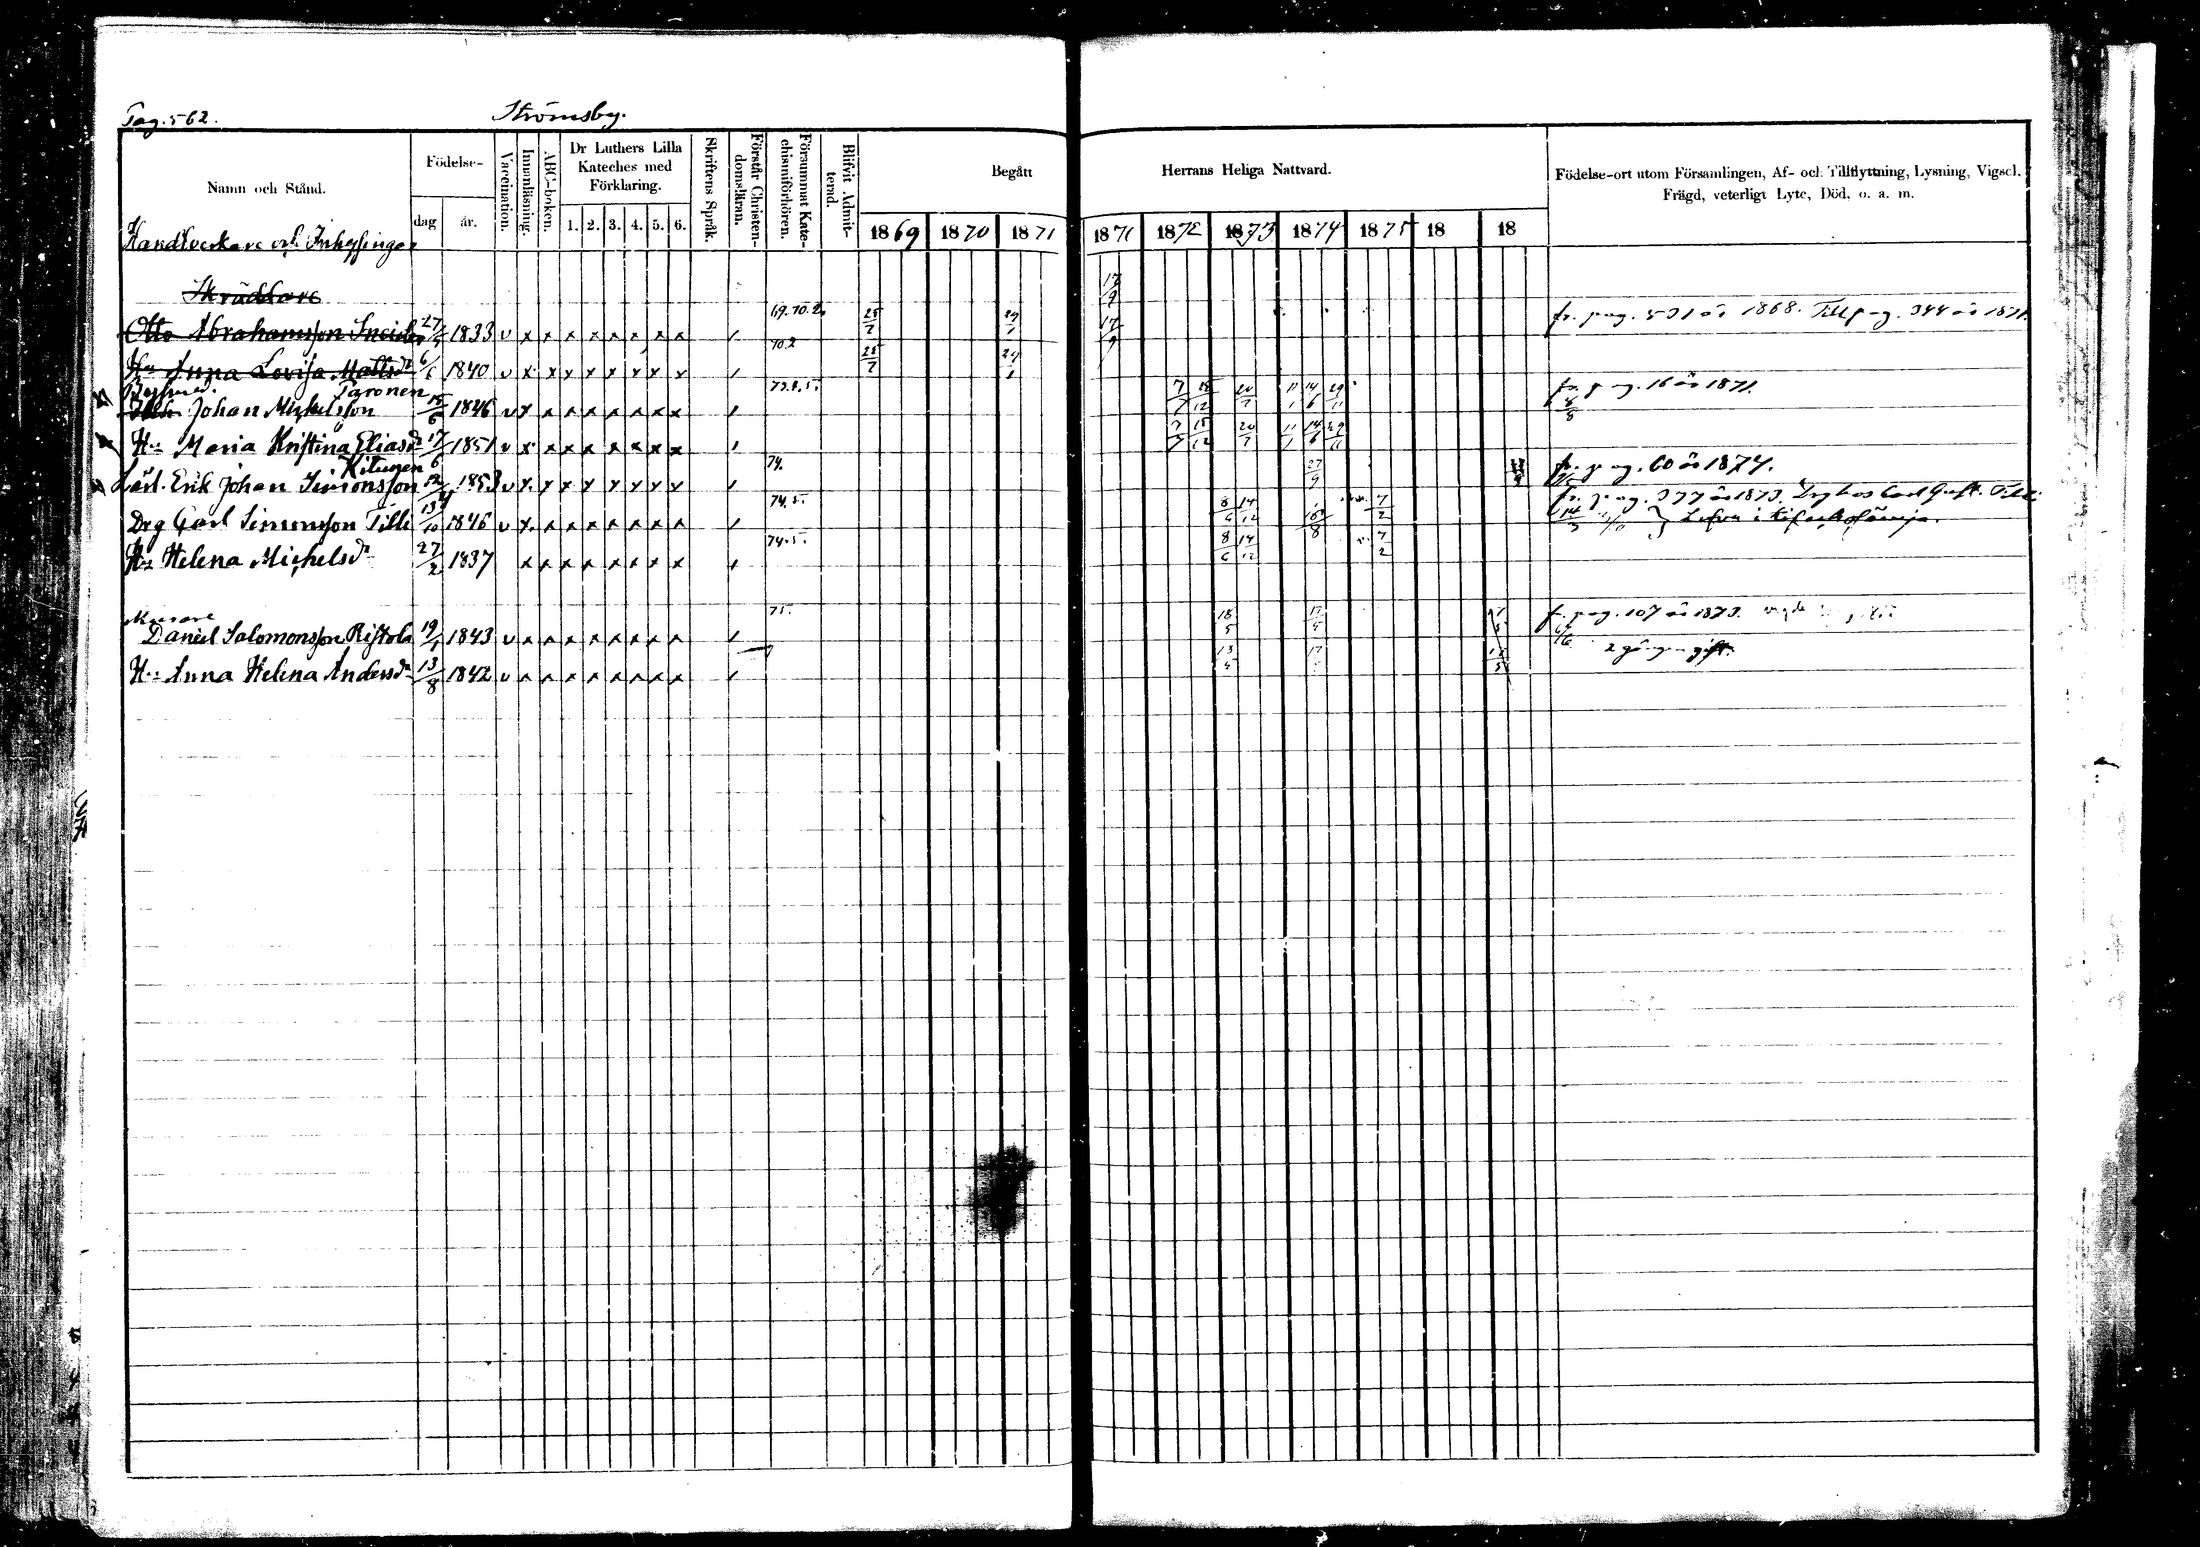 Pag. 562.
Strömsby.
Namn och Stånd.
Födelse-
dag
år.
Vaccination.
Innanläsning.
ABC-boken.
Dr Luthers Lilla
Kateches med
Förklaring.
1. 2. 3. 4. 5. 6.
Skriftens Språk.
Förstår Christen-
domsläran.
Försummat Kate-
chismiförhören.
Blifvit Admit-
terad.
Begått
Herrans Heliga Nattvard.
1869 1870 1871
1871 1872 1873 1874 1875 18 18
Födelse-ort utom Församlingen, Af- och Tillflyttning, Lysning, Vigsel,
Frägd, veterligt Lyte, Död, o. a. m.
Handtverkare och Inhysingar
Skräddare 17/9
Otto Abrahamsson 27 1833 v x x x x x x x x 69.70.2. 25/7 17/9 fr. pag. 531 år 1868. Till pag. 344 år 1871.
Hu Anna Lovisa Mattsdr 6/6 1840 v x x x x x x x x 70.2 25/7
Taronen
Johan Mickelsson 15/6 1846 v x x x x x x x x 73.4.5. 7/7 15/12 20/7 11/1 14/6 29/11 fr. pag. 16 år 1871. 8/8
Hu Maria Kristina Eliasdr 17 1851 v x x x x x x x x 7/7 15/12 20/7 11/1 14/6 29/11
Kitunen
Erik Johan Simonsson 1853 v x x x x x x x x 74. 27/9 fr. pag. 60 år 1874.
Drg Carl Simonsson Tilli 13/10 1846 v x x x x x x x x 74.5. 8/6 14/12 16/8 7/2 fr. pag. 377 år 1873. Drg hos Carl Gust.
Hu Helena Michelsdr 27/2 1837 x x x x x x x x 74.5. 8/6 14/12 7/2
Murare
Daniel Salomonsson Ristola 19/1 1843 v x x x x x x x x 75. 18/5 17/5 fr. pag. 107 år 1873.
2 gången gift.
Hu Anna Helena Andersdr 13/8 1842 v x x x x x x x x